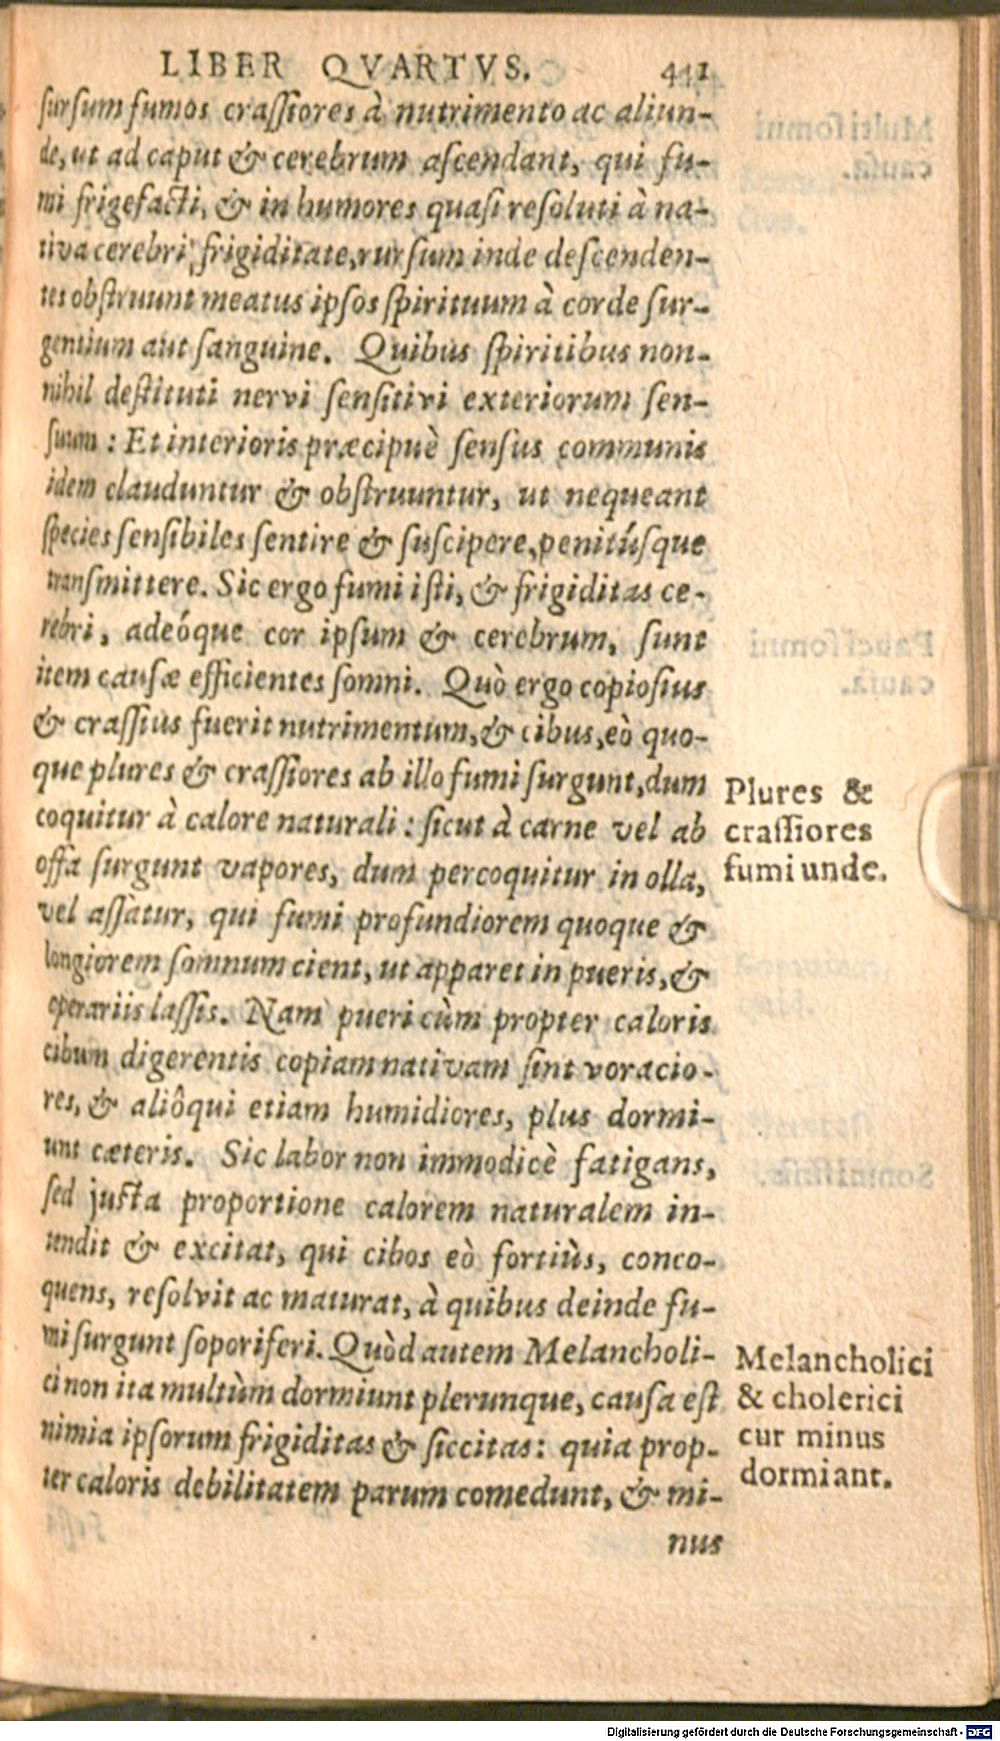 LIBER QVARTVS. 441
ſurſum fumos craſſiores à nutrimento ac aliun-
de, ut ad caput & cerebrum aſcendant, qui fu-
mi frigefacti, & in humores quaſi reſoluti à na-
tiva cerebri frigiditate, rurſum inde deſcenden-
tes obſtruunt meatus ipſos ſpirituum à corde ſur-
gentium aut ſanguine. Quibus ſpiritibus non-
nihil deſtituti nervi ſenſitivi exteriorum ſen-
ſuum : Et interioris præcipuè ſenſus communis
idem clauduntur & obſtruuntur, ut nequeant
ſpecies ſenſibiles ſentire & ſuſcipere, penitúſque
tranſmittere. Sic ergo fumi iſti, & frigiditas ce-
rebri, adeóque cor ipſum & cerebrum, ſunt
item cauſæ efficientes ſomni. Quò ergo copioſius
& craſſius fuerit nutrimentum, & cibus, eò quo-
que plures & craſſiores ab illo fumi ſurgunt, dum
coquitur à calore naturali : ſicut à carne vel ab
offa ſurgunt vapores, dum percoquitur in olla,
vel aſſatur, qui fumi profundiorem quoque &
longiorem ſomnum cient, ut apparet in pueris, &
operariis laſſis. Nam pueri cùm propter caloris
cibum digerentis copiam nativam ſint voracio-
res, & aliôqui etiam humidiores, plus dormi-
unt cæteris. Sic labor non immodicè fatigans,
ſed juſta proportione calorem naturalem in-
tendit & excitat, qui cibos eò fortiùs, conco-
quens, reſolvit ac maturat, à quibus deinde fu-
mi ſurgunt ſoporiferi. Quòd autem Melancholi-
ci non ita multùm dormiunt plerunque, cauſa eſt
nimia ipſorum frigiditas & ſiccitas : quia prop-
ter caloris debilitatem parum comedunt, & mi-
nus
Plures &
craſſiores
fumi unde.
Melancholici
& cholerici
cur minus
dormiant.
Digitalisierung gefördert durch die Deutsche Forschungsgemeinschaft - DFG